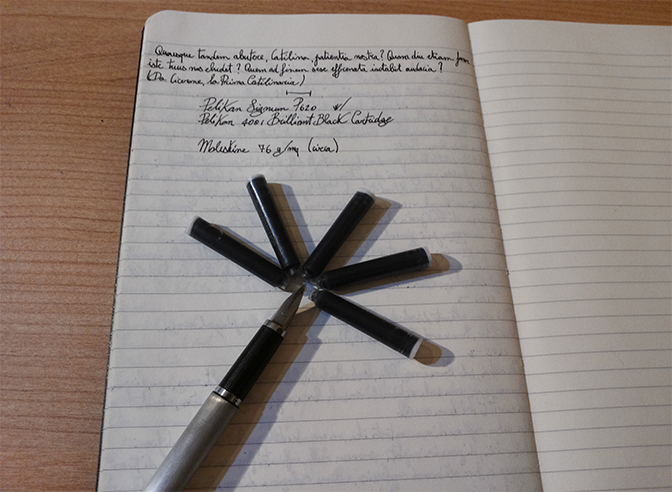 Quousque tandem abutere, Catilina, patientia nostra? Quam diu etiam furor
iste tuus nos eludet? Quem ad finem sese effrenata iactabit audacia?
(Da Cicerone, la Prima Catilinaria)
Pelikan Signum P620 w/
Pelikan 4001 Brilliant Black Cartridge
Moleskine 76 g/mq (circa)